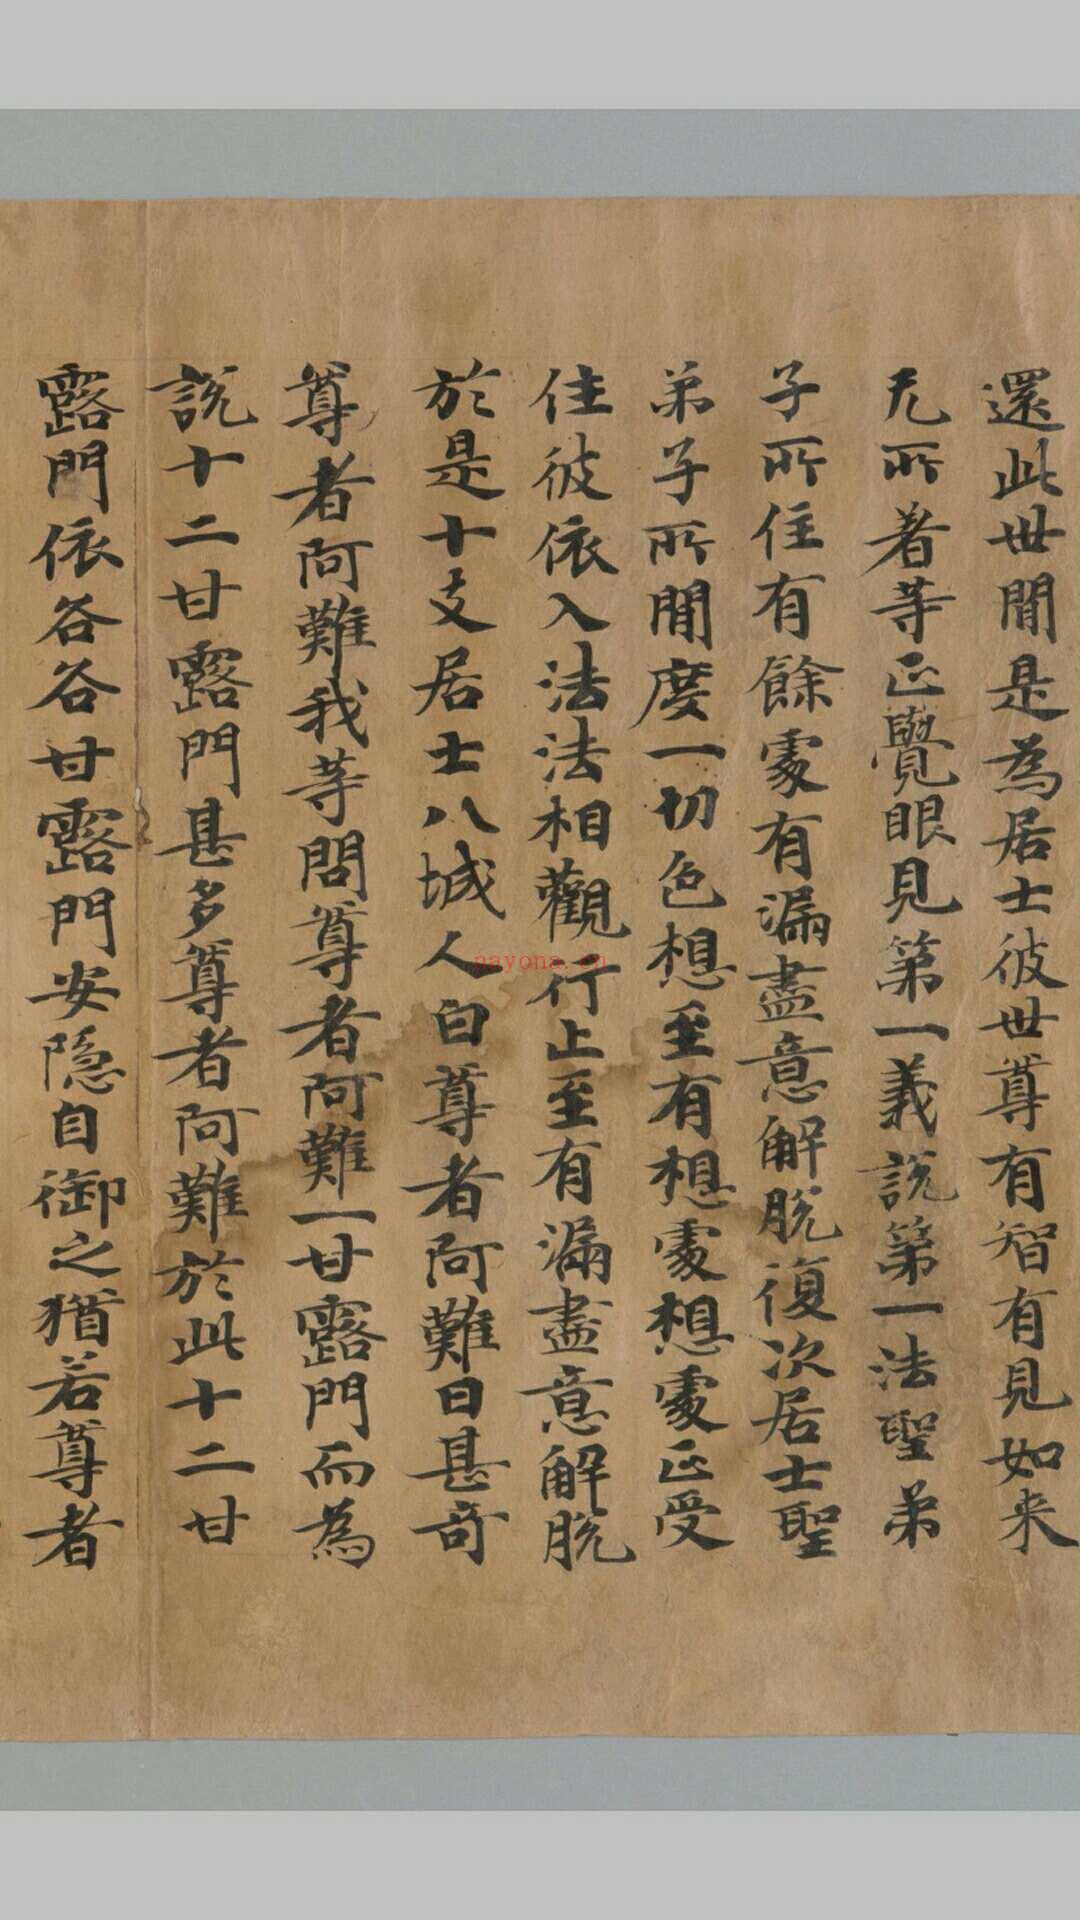 還此世間是為居士彼世尊有智有見如来
无所著等正覺眼見第一義說第一法聖弟
子所住有餘處有漏盡意解脫復次居士聖
弟子所聞度一切色想至有想處想處正受
住彼依入法法相觀行止至有漏盡意解脫
於是十支居士八城人白尊者阿難曰甚奇
尊者阿難我等問尊者阿難一甘露門而為
說十二甘露門甚多尊者阿難於此十二甘
露門依各各甘露門安隱自御之猶若尊者
nayona.cn